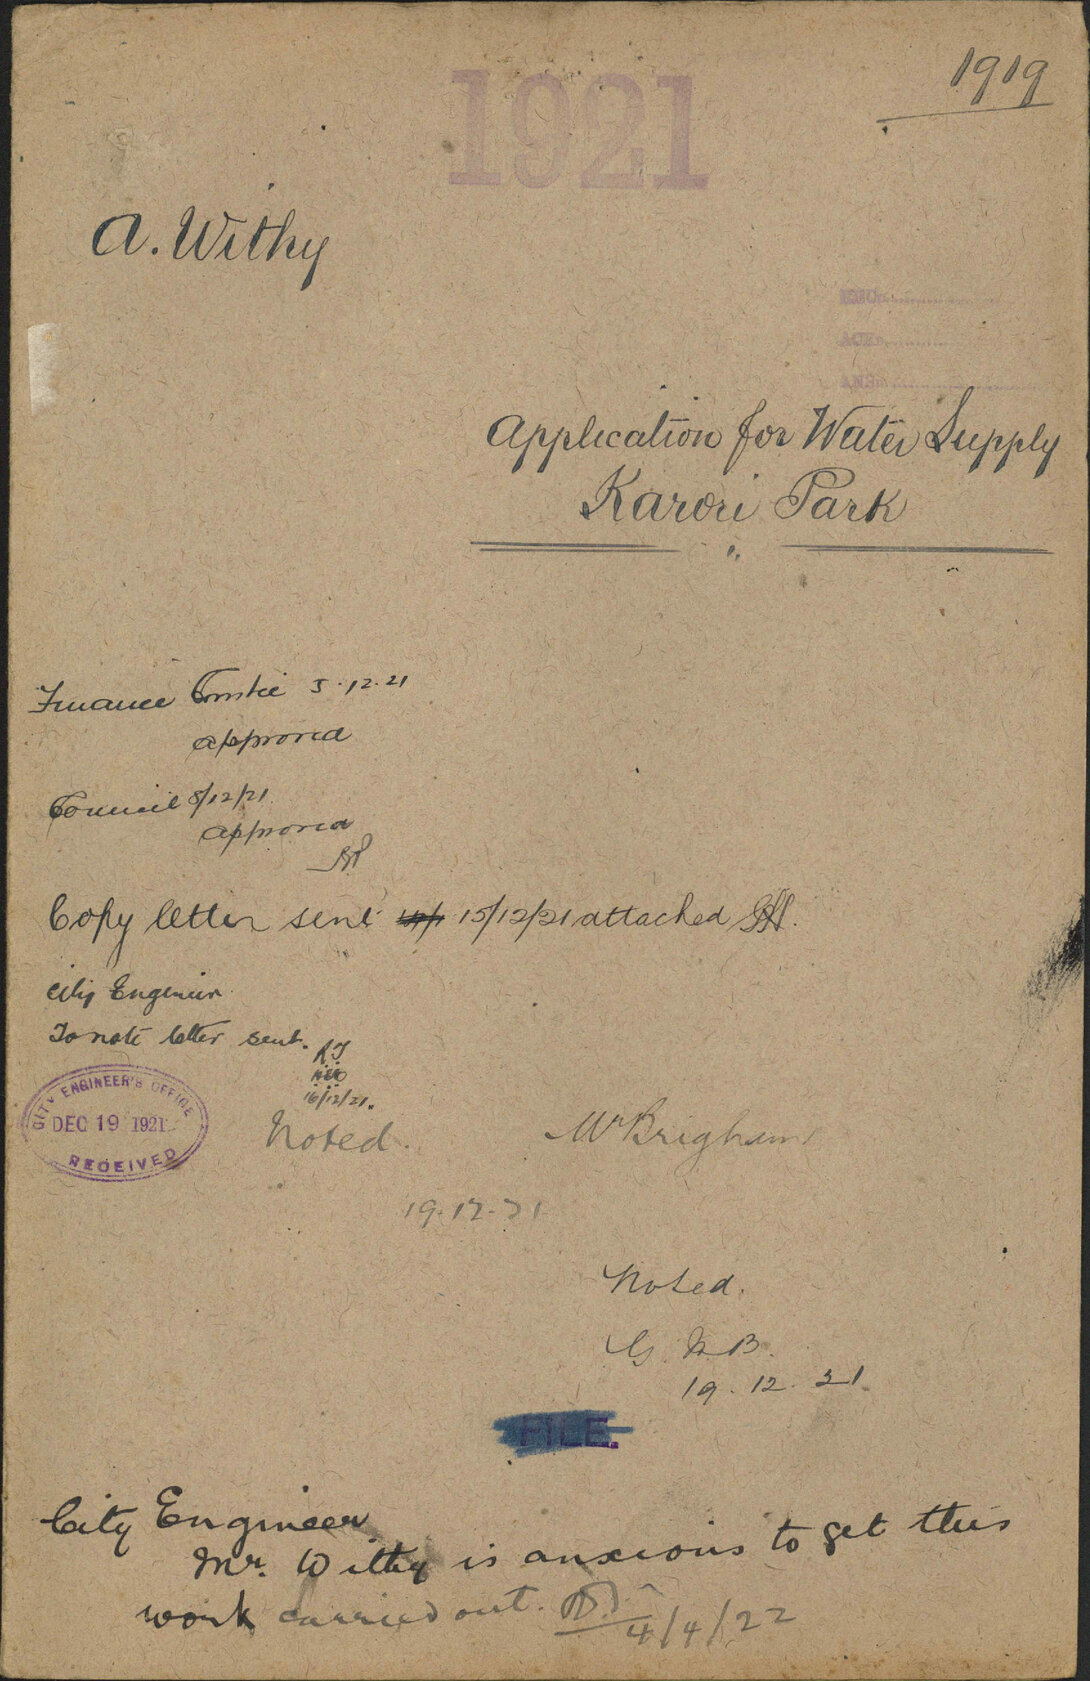 1919
1921
A. Withy
Application for Water Supply
Karori Park
Finance Comtee 5.12.21
approved
Council 8/12/21
approved
Copy letter sent 15/12/21 attached
City Engineer
To note letter sent.
16/12/21.
CITY ENGINEER'S OFFICE
DEC 19 1921
RECEIVED
Noted.
Mr Brigham
19.12.21
Noted.
G. M B.
19.12.21
FILE.
City Engineer
Mr. Withy is anxious to get this
work carried out.
4/4/22